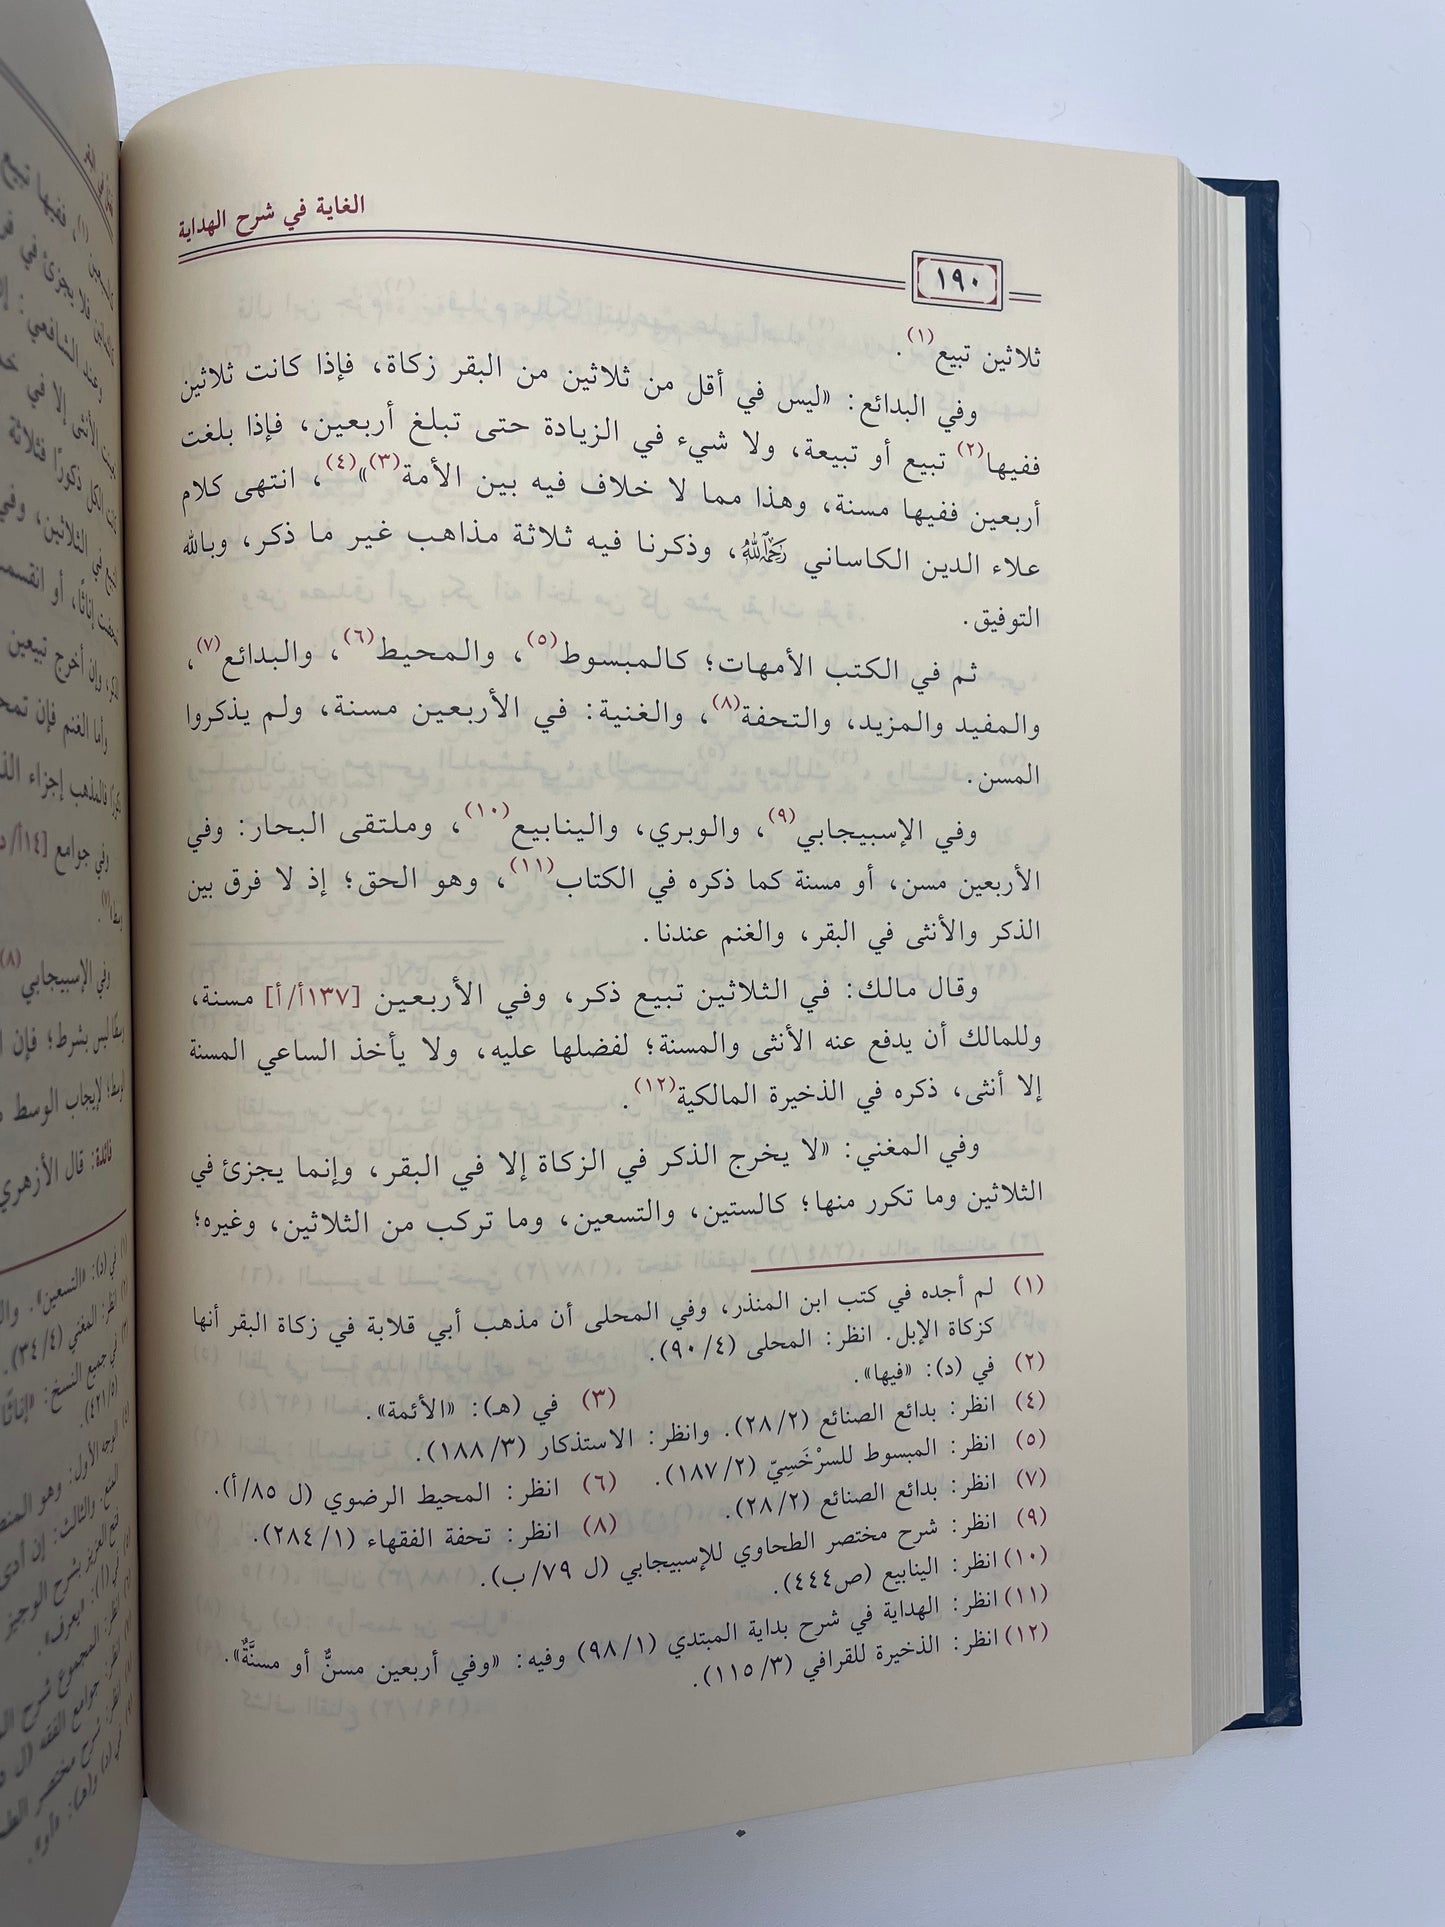 الغاية في شرح الهداية
١٩٠
ثلاثين تبيع(١).
وفي البدائع: «ليس في أقل من ثلاثين من البقر زكاة، فإذا كانت ثلاثين
ففيها(٢) تبيع أو تبيعة، ولا شيء في الزيادة حتى تبلغ أربعين، فإذا بلغت
أربعين ففيها مسنة، وهذا مما لا خلاف فيه بين الأمة(٣)»(٤)، انتهى كلام
علاء الدين الكاساني رحمه الله، وذكرنا فيه ثلاثة مذاهب غير ما ذكر، وبالله
التوفيق.
ثم في الكتب الأمهات؛ كالمبسوط(٥)، والمحيط(٦)، والبدائع(٧)،
والمفيد والمزيد، والتحفة(٨)، والغنية: في الأربعين مسنة، ولم يذكروا
المسن.
وفي الإسبيجابي(٩)، والوبري، والينابيع(١٠)، وملتقى البحار: وفي
الأربعين مسن، أو مسنة كما ذكره في الكتاب(١١)، وهو الحق؛ إذ لا فرق بين
الذكر والأنثى في البقر، والغنم عندنا.
وقال مالك: في الثلاثين تبيع ذكر، وفي الأربعين [١٣٧أ/أ] مسنة،
وللمالك أن يدفع عنه الأنثى والمسنة؛ لفضلها عليه، ولا يأخذ الساعي المسنة
إلا أنثى، ذكره في الذخيرة المالكية(١٢).
وفي المغني: «لا يخرج الذكر في الزكاة إلا في البقر، وإنما يجزئ في
الثلاثين وما تكرر منها؛ كالستين، والتسعين، وما تركب من الثلاثين، وغيره؛
(١) لم أجده في كتب ابن المنذر، وفي المحلى أن مذهب أبي قلابة في زكاة البقر أنها
كزكاة الإبل. انظر: المحلى (٤/٩٠).
(٢) في (د): «فيها».
(٣) في (هـ): «الأئمة».
(٤) انظر: بدائع الصنائع (٢/٢٨). وانظر: الاستذكار (٣/١٨٨).
(٥) انظر: المبسوط للسرْخَسِيّ (٢/١٨٧).
(٦) انظر: المحيط الرضوي (ل ٨٥/أ).
(٧) انظر: بدائع الصنائع (٢/٢٨).
(٨) انظر: تحفة الفقهاء (١/٢٨٤).
(٩) انظر: شرح مختصر الطحاوي للإسبيجابي (ل ٧٩/ب).
(١٠) انظر: الينابيع (ص٤٤٤).
(١١) انظر: الهداية في شرح بداية المبتدي (١/٩٨) وفيه: «وفي أربعين مسنٌّ أو مسنَّةٌ».
(١٢) انظر: الذخيرة للقرافي (٣/١١٥).